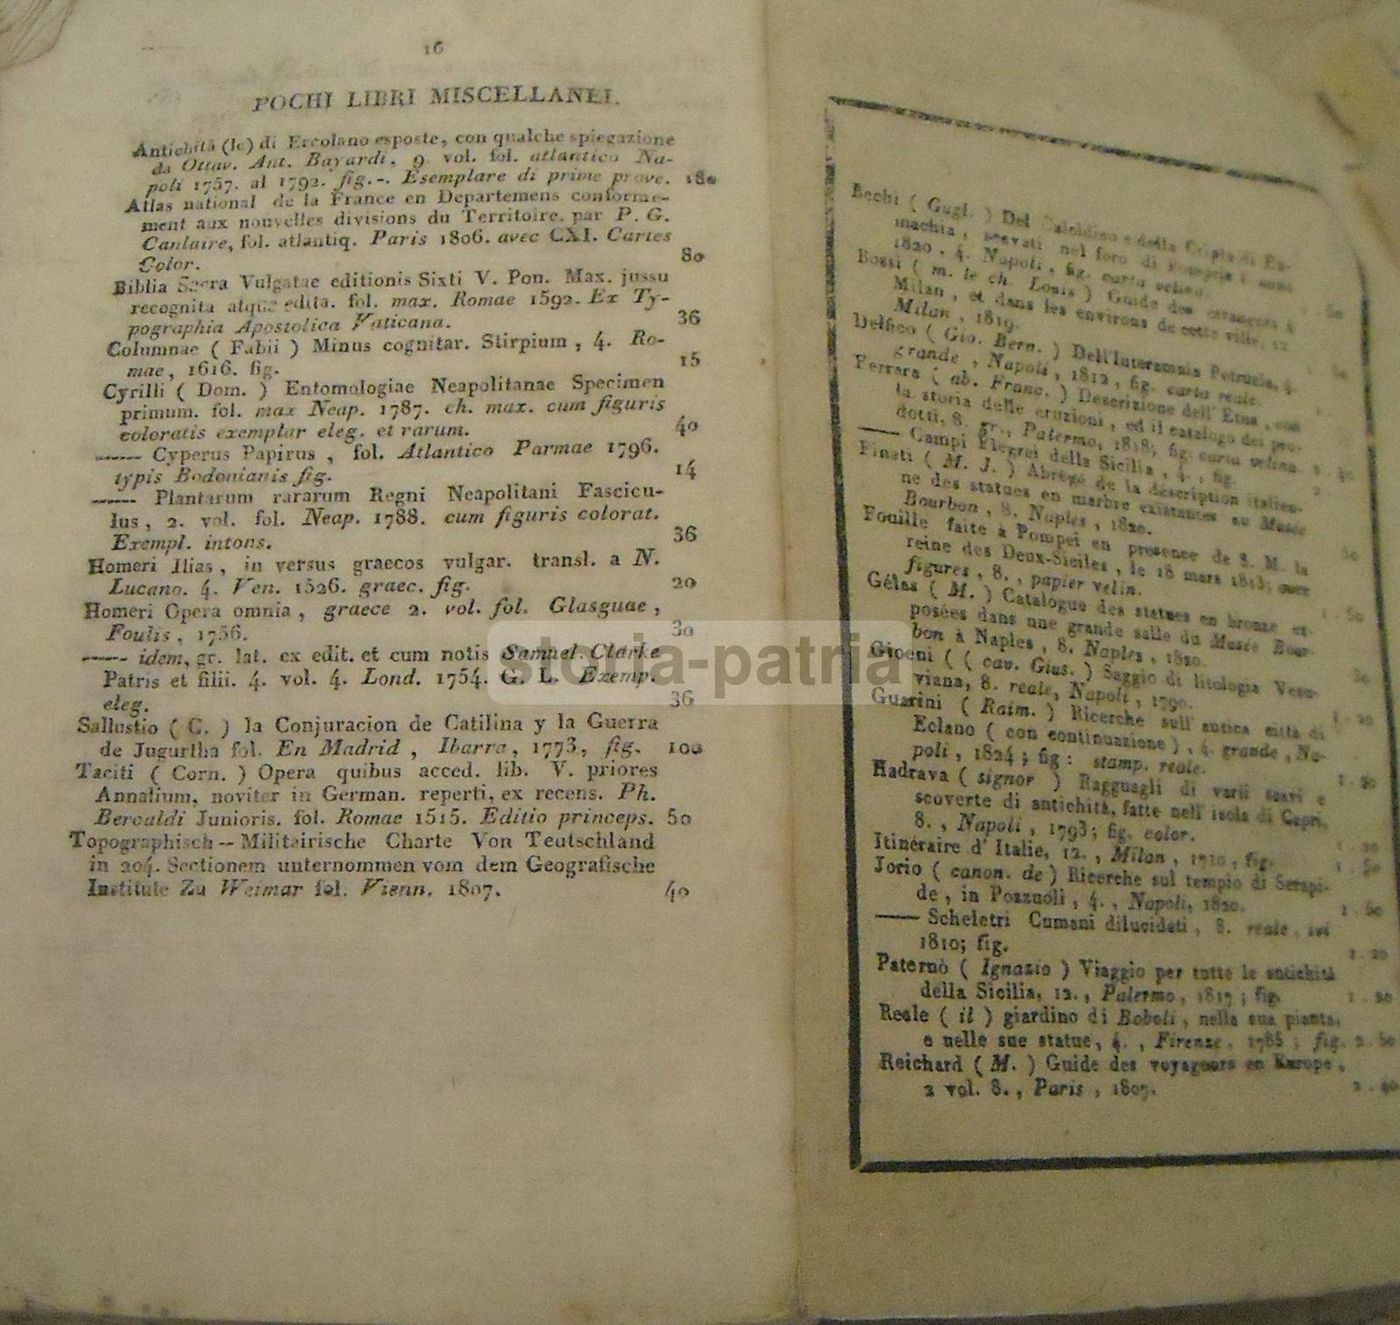 16
POCHI LIBRI MISCELLANEI.
Antichità (le) di Ercolano esposte, con qualche spiegazione
da Ottav. Ant. Bayardi, 9 vol. fol. atlantico Na-
poli 1757. al 1792. fig.-. Esemplare di prime prove. 180
Atlas national de la France en Departemens conforme-
ment aux nouvelles divisions du Territoire. par P. G.
Canlaire, fol. atlantiq. Paris 1806. avec CXI. Cartes
Color. 80
Biblia Sacra Vulgatae editionis Sixti V. Pon. Max. jussu
recognita atque edita. fol. max. Romae 1592. Ex Ty-
pographia Apostolica Vaticana. 36
Columnae ( Fabii ) Minus cognitar. Stirpium, 4. Ro-
mae, 1616. fig. 15
Cyrilli ( Dom. ) Entomologiae Neapolitanae Specimen
primum. fol. max Neap. 1787. ch. max. cum figuris
coloratis exemplar eleg. et rarum. 40
—— Cyperus Papirus, fol. Atlantico Parmae 1796.
typis Bodonianis fig. 14
—— Plantarum rararum Regni Neapolitani Fascicu-
lus, 2. vol. fol. Neap. 1788. cum figuris colorat.
Exempl. intons. 36
Homeri Ilias, in versus graecos vulgar. transl. a N.
Lucano. 4. Ven. 1526. graec. fig. 20
Homeri Opera omnia, graece 2. vol. fol. Glasguae,
Foulis, 1756. 30
—— idem, gr. lat. ex edit. et cum notis Samuel. Clarke
Patris et filii. 4. vol. 4. Lond. 1754. G. L. Exemp.
eleg. 36
Sallustio ( C. ) la Conjuracion de Catilina y la Guerra
de Jugurtha fol. En Madrid, Ibarra, 1773, fig. 100
Taciti ( Corn. ) Opera quibus acced. lib. V. priores
Annalium, noviter in German. reperti, ex recens. Ph.
Beroaldi Junioris. fol. Romae 1515. Editio princeps. 50
Topographisch -- Militairische Charte Von Teutschland
in 204. Sectionem unternommen vom dem Geografische
Institute Zu Weimar fol. Vienn. 1807. 40
storia-patria
Bechi ( Gugl. ) Del Calcidico e della Cripta di Eu-
machia, scavati nel foro di Pompeja
1820, 4. Napoli, fig. carta velina.
Bossi ( m. le ch. Louis ) Guide des étrangers à
Milan, et dans les environs de cette ville, 12
Milan, 1819.
Delfico ( Gio. Bern. ) Dell'Interamnia Petruzia, 4.
grande, Napoli, 1812, fig. carta reale.
Ferrara ( ab. Franc. ) Descrizione dell' Etna, con
la storia delle eruzioni, ed il catalogo dei pro-
dotti, 8. gr., Palermo, 1818; fig. carta velina.
—— Campi Flegrei della Sicilia, 4., fig.
Finati ( M. J. ) Abrégé de la description
des statues en marbre existantes au Musée
Bourbon, 8. Naples, 1820.
Fouille faite à Pompei en presence de S. M. la
reine des Deux-Siciles, le 18 mars 1813; avec
figures, 8., papier velin.
Gélas ( M. ) Catalogue des statues en bronze ex-
posées dans une grande salle du Musée Bour-
bon à Naples, 8. Naples, 1820.
Gioeni ( ( cav. Gius. ) Saggio di litologia Vesu-
viana, 8. reale, Napoli, 1790.
Guarini ( Raim. ) Ricerche sull' antica città di
Eclano ( con continuazione ), 4. grande, Na-
poli, 1824; fig: stamp. reale.
Hadrava ( signor ) Ragguagli di varii scavi e
scoverte di antichità, fatte nell' isola di Capri,
8., Napoli, 1793; fig. color.
Itinéraire d' Italie, 12., Milan, fig.
Jorio ( canon. de ) Ricerche sul tempio di Serapi-
de, in Pozzuoli, 4., Napoli, 1820.
—— Scheletri Cumani dilucidati, 8. reale, ivi
1810; fig.
Paternò ( Ignazio ) Viaggio per tutte le antichità
della Sicilia, 12., Palermo, 1817; fig.
Reale ( il ) giardino di Boboli, nella sua pianta,
e nelle sue statue, 4., Firenze, fig.
Reichard ( M. ) Guide des voyageurs en Europe,
2 vol. 8., Paris, 1807.